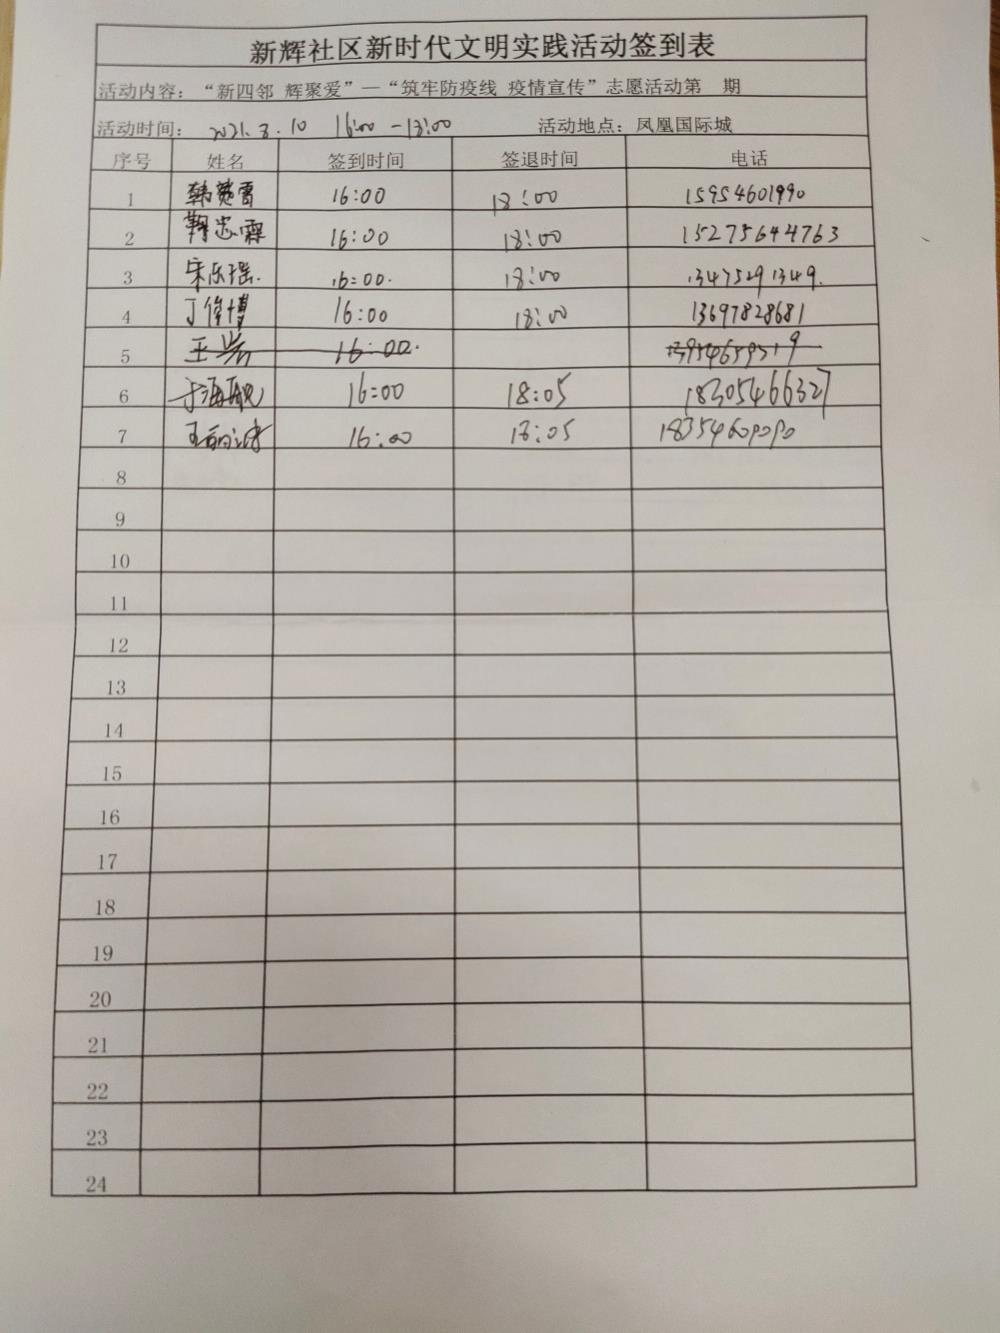 新辉社区新时代文明实践活动签到表
活动内容：“新四邻 辉聚爱”—“筑牢防疫线 疫情宣传”志愿活动第 期
活动时间： 2021.8.10 16:00 -18:00 活动地点：凤凰国际城
序号 姓名 签到时间 签退时间 电话
1 16:00 18:00 15954601990
2 16:00 18:00 15275644763
3 宋乐瑶. 16:00. 18:00 13475291349.
4 丁俊博 16:00 18:00 13697828681
5 王 16:00.
6 于海 16:00 18:05 18305466327
7 王 16:00 18:05 18354609090
8
9
10
11
12
13
14
15
16
17
18
19
20
21
22
23
24